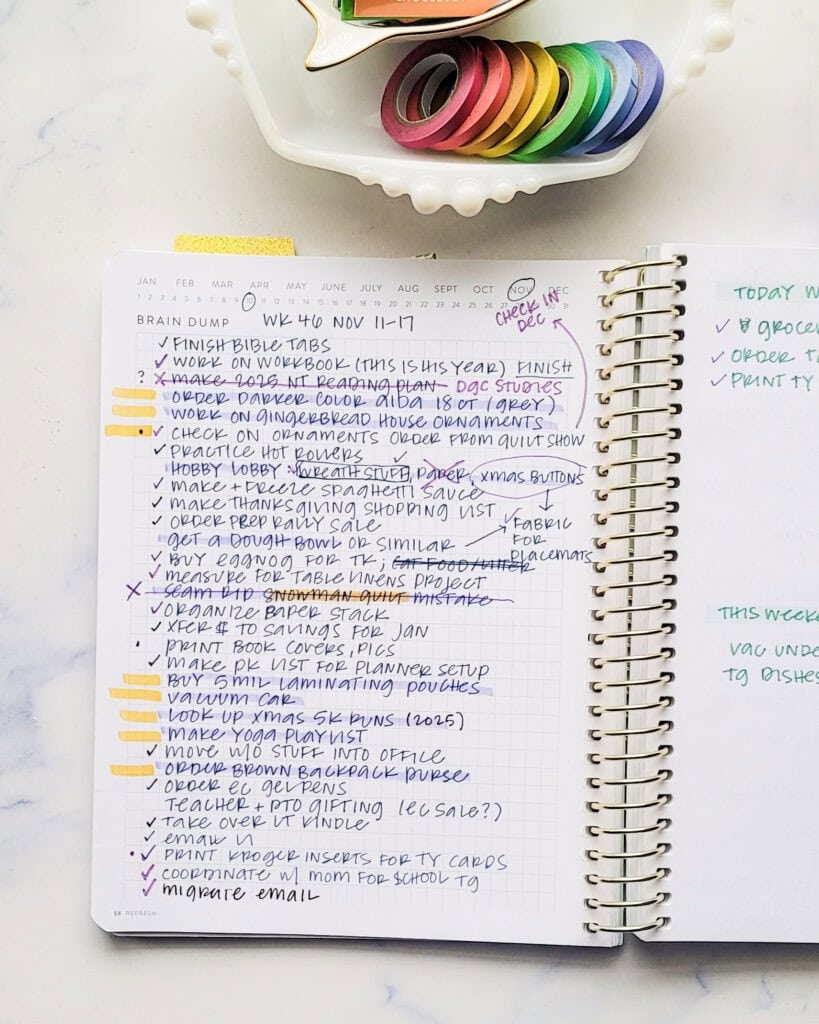 JAN FEB MAR APR MAY JUNE JULY AUG SEPT OCT NOV DEC
1 2 3 4 5 6 7 8 9 10 11 12 13 14 15 16 17 18 19 20 21 22 23 24 25 26 27 30 31
CHECK IN DEC
BRAIN DUMP WK 46 NOV 11-17
✓ FINISH BIBLE TABS
✓ WORK ON WORKBOOK (THIS IS HIS YEAR) FINISH
? X MAKE 2025 NT READING PLAN DGC STUDIES
ORDER DARKER COLOR AIDA 18 CT (GREY)
WORK ON GINGERBREAD HOUSE ORNAMENTS
• ✓ CHECK ON ORNAMENTS ORDER FROM QUILT SHOW
✓ PRACTICE HOT ROLLERS
HOBBY LOBBY: ✓ WREATH STUFF, PAPER, XMAS BUTTONS
✓ MAKE + FREEZE SPAGHETTI SAUCE
✓ MAKE THANKSGIVING SHOPPING LIST
✓ ORDER PREP RALLY SALE
✓ FABRIC FOR PLACEMATS
GET A DOUGH BOWL OR SIMILAR
✓ BUY EGGNOG FOR TK; CAT FOOD/LITTER
✓ MEASURE FOR TABLE LINENS PROJECT
X SEAM RIP SNOWMAN QUILT MISTAKE
✓ ORGANIZE PAPER STACK
✓ XFER $ TO SAVINGS FOR JAN
• PRINT BOOK COVERS, PICS
✓ MAKE PK LIST FOR PLANNER SETUP
BUY 5 MIL LAMINATING POUCHES
VACUUM CAR
LOOK UP XMAS 5K RUNS (2025)
MAKE YOGA PLAYLIST
✓ MOVE W/O STUFF INTO OFFICE
ORDER BROWN BACKPACK PURSE
✓ ORDER EC GEL PENS
TEACHER + PTO GIFTING (EC SALE?)
✓ TAKE OVER LT KINDLE
✓ EMAIL
• ✓ PRINT KROGER INSERTS FOR TY CARDS
✓ COORDINATE W/ MOM FOR SCHOOL TG
✓ MIGRATE EMAIL
56 REFRESH
TODAY W
✓ GROCE
✓ ORDER T
✓ PRINT TY
THIS WEEK
VAC UNDE
TG DISHES